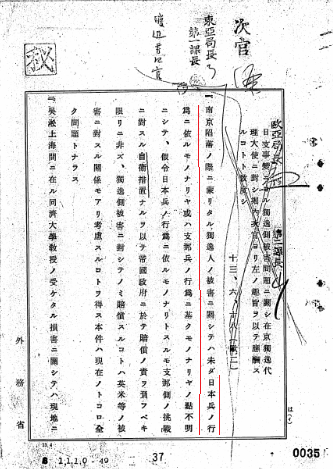 次官
東亞局長
第一課長
歐亞局長
第二課長
秘
日支事變ニヨル獨逸側被害問題ニ關シ在京獨逸代
理大使ニ對シ 次官ヨリ左ノ趣旨ヲ以テ應酬ス
ルコトト致度シ
十三、六、
一、南京陷落ノ際ニ蒙リタル獨逸人ノ被害ニ關シテハ未ダ日本兵ノ行
爲ニ依ルモノナリヤ或ハ支那兵ノ行爲ニ基クモノナリヤノ點不明
ニシテ、假令日本兵ノ行爲ニ依ルモノナリトスルモ支那側ノ挑戰
ニ對スル自衞措置ナルヲ以テ帝國政府ニ於テ賠償ノ責ヲ負フベキ
限リニ非ズ、獨逸側被害ニ對シテノミ賠償スルコトハ英米等ノ被
害ニ對スル關係モアリ考慮スルコトヲ得ス本件ハ現在ノトコロ全
ク問題トナラス
二、吳淞上海間ニ在ル同濟大學教授ノ受ケタル損害ニ關シテハ現地ニ
外務省
37
0035